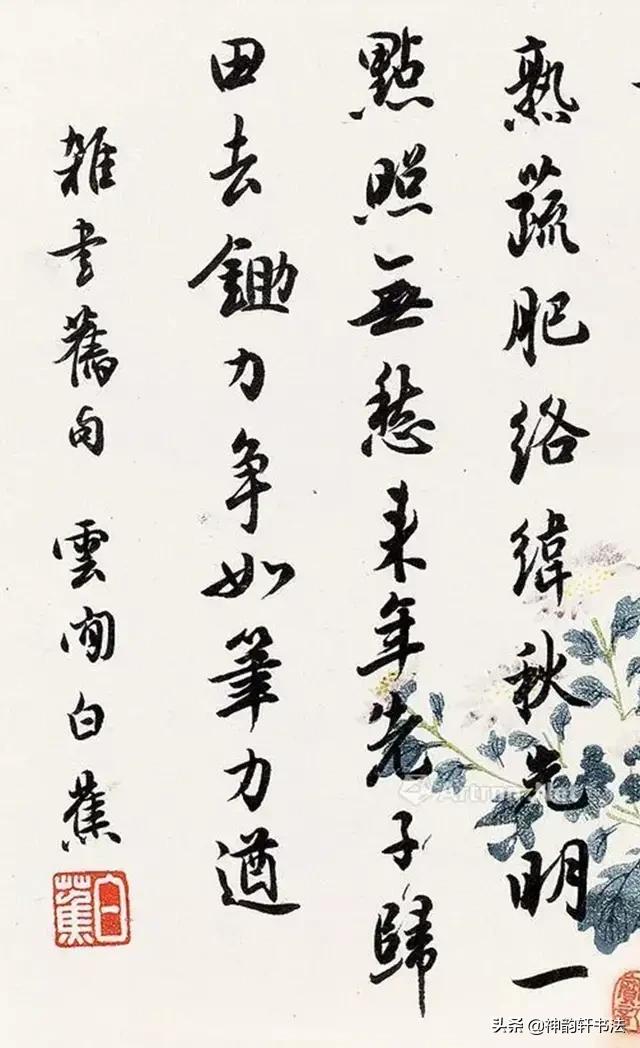 熟蔬肥絡緯秋光明一
點照無愁来年老子歸
田去鋤力争如筆力遒
雜書舊句 雲間白蕉
白蕉
Artron.Net
头条 @神韵轩书法